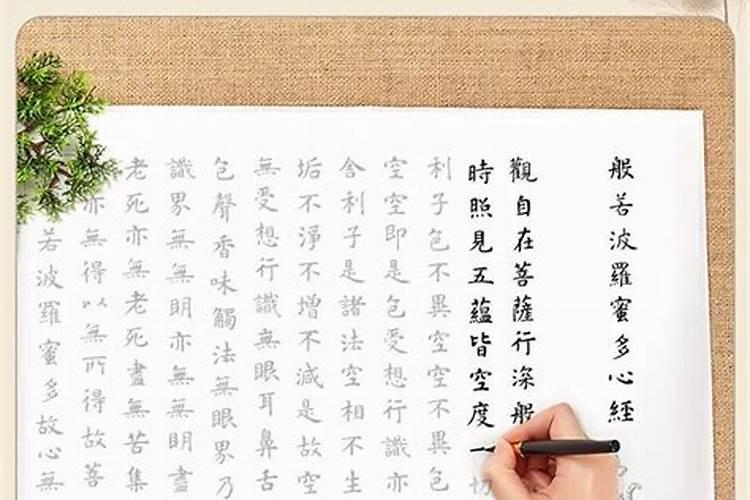 般若波羅蜜多心經
觀自在菩薩行深般
時照見五蘊皆空度一切
利子色不異空空不異色
空空即是色受想行識亦
舍利子是諸法空相不生
垢不淨不增不減是故空
無受想行識無眼耳鼻舌
色聲香味觸法無眼界乃
識界無無明亦無無明盡
老死亦無老死盡無苦集
亦無得以無所得故菩
若波羅蜜多故心無